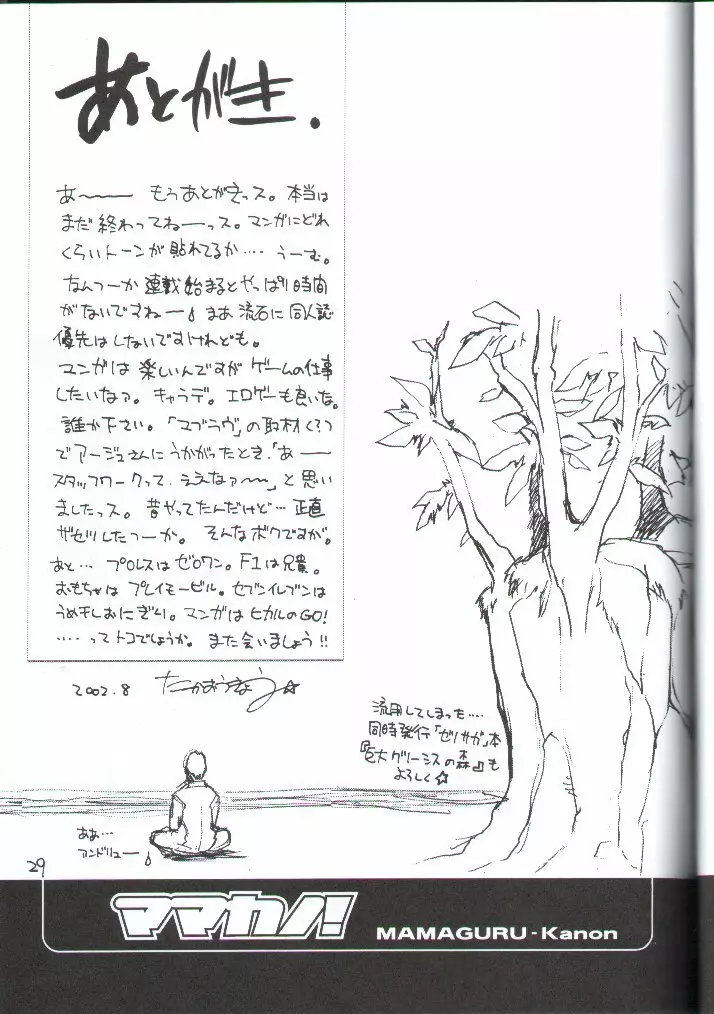 あとがき.
あ〜〜 もうあとがきっス。本当は
まだ終わってねーっス。マンガにどれ
くらいトーンが貼れてるか‥‥うーむ。
なんつーか連載始まるとやっぱり時間
がないですねー。まあ流石に同人誌
優先はしないですけれども。
マンガは楽しいんですがゲームの仕事
したいなァ。キャラデ。エロゲーも良いな。
誰か下さい。「マブラヴ」の取材くるって
でアージュさんにうかがったとき、「あー
スタッフワークって、ええなァ〜〜」と思い
ましたっス。昔やってたんだけど…正直
ザセツしたつーか。そんなボクですが。
あと… プロレスはゼロワン。F1は兄貴。
おもちゃはプレイモービル。セブンイレブンは
うめチしおにぎり。マンガはヒカルのGO!
‥‥ってトコでしょうか。また会いましょう!!
2002.8
流用してしまった‥‥
同時発行「ゼノサガ」本
『巨大グリーシスの森』も
よろしく☆
ああ…
アンドリュー
29
ママカノ!
MAMAGURU-Kanon